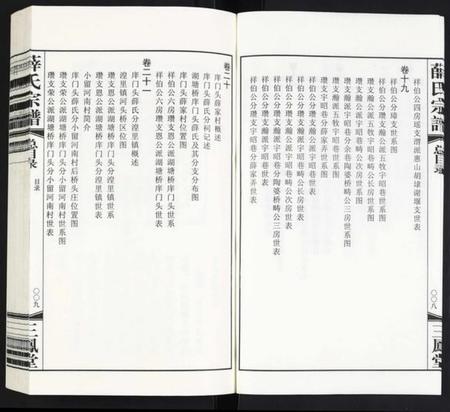 薛氏宗譜
总目录
〇〇八
三鳳堂
祥伯公四房瑶支渭派惠山胡埭湖堰支世表
卷十九
祥伯公分璋支世系图
瓒支瀚派五牧宇昭巷世系图
瓒支瀚派五牧宇昭巷畴公长房世系图
瓒支瀚派宇昭巷畴公次房世系图
瓒支瀚派宇昭巷分余巷陶婆桥畴公三房世系图
瓒支宇昭巷分薛家弄世系图
祥伯公分瓒支瀚派五牧宇昭巷世表
祥伯公分瓒支瀚派宇昭巷畴公长房世表
祥伯公分瓒支瀚派宇昭巷畴公次房世表
祥伯公分瓒支宇昭巷分陶婆桥畴公三房世表
祥伯公分瓒支宇昭巷分薛家弄世表
卷二十
庠门头薛家村概述
庠门头薛氏分祠记述
湖塘桥庠门头薛氏及其分支分布图
庠门头薛家村位置图
祥伯公六房瓒支恩公派湖塘桥庠门头世系
祥伯公六房瓒支恩公派湖塘桥庠门头世表
卷二十一
庠门头薛氏分湟里镇概述
湟里镇河头桥区位图
瓒支恩公派湖塘桥庠门头分湟里镇世系
瓒支恩公派湖塘桥庠门头分湟里镇世表
小留河南村简介
庠门头薛氏分小留河南村后桥头庄位置图
瓒支荣公派湖塘桥庠门头分小留河南村世系图
瓒支荣公派湖塘桥庠门头分小留河南村世表
薛氏宗譜
总目录
目录
〇〇九
三鳳堂